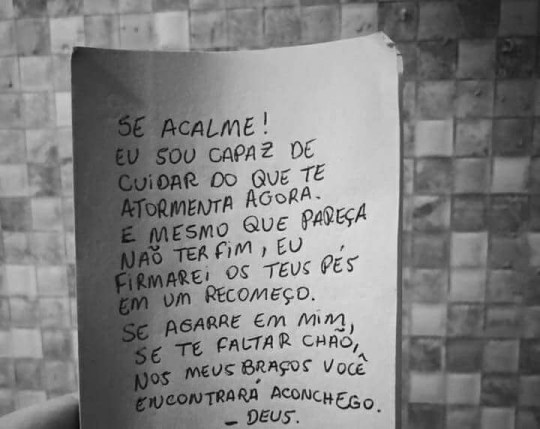 SE ACALME!
EU SOU CAPAZ DE
CUIDAR DO QUE TE
ATORMENTA AGORA.
E MESMO QUE PAREÇA
NÃO TER FIM, EU
FIRMAREI OS TEUS PÉS
EM UM RECOMEÇO.
SE AGARRE EM MIM,
SE TE FALTAR CHÃO,
NOS MEUS BRAÇOS VOCÊ
ENCONTRARÁ ACONCHEGO.
- DEUS.